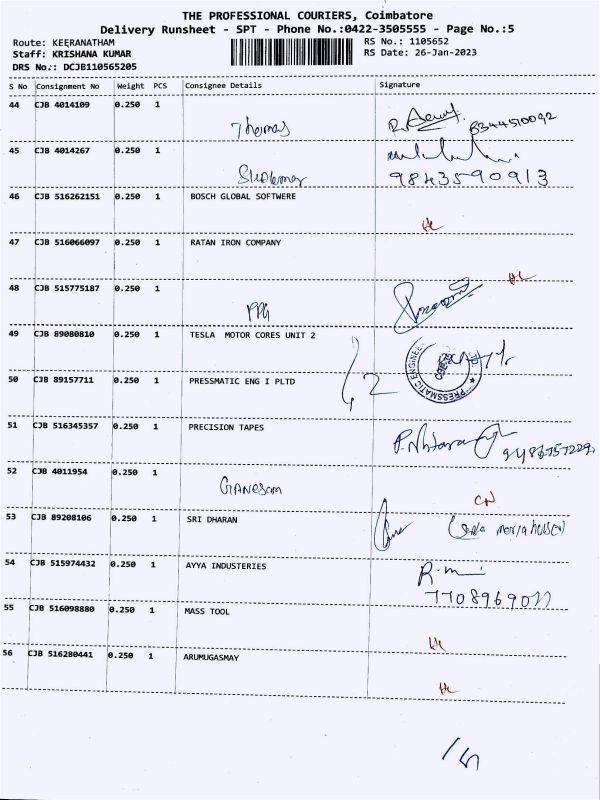 THE PROFESSIONAL COURIERS, Coimbatore
Delivery Runsheet - SPT - Phone No.:0422-3505555 - Page No.:5
Route: KEERANATHAM
RS No.: 1105652
Staff: KRISHANA KUMAR
RS Date: 26-Jan-2023
DRS No.: DCJB110565205
S No Consignment No Weight PCS Consignee Details Signature
44 CJB 4014109 0.250 1
Thomas 8344510092
45 CJB 4014267 0.250 1
9843590913
46 CJB 516262151 0.250 1 BOSCH GLOBAL SOFTWERE
HL
47 CJB 516066097 0.250 1 RATAN IRON COMPANY
HL
48 CJB 515775187 0.250 1
49 CJB 89080810 0.250 1 TESLA MOTOR CORES UNIT 2
2
PRESSMATIC ENGINEE
50 CJB 89157711 0.250 1 PRESSMATIC ENG I PLTD
51 CJB 516345357 0.250 1 PRECISION TAPES
52 CJB 4011954 0.250 1
Ganesam
CN
53 CJB 89208106 0.250 1 SRI DHARAN
54 CJB 515974432 0.250 1 AYYA INDUSTERIES
R.m
7708969077
55 CJB 516098880 0.250 1 MASS TOOL
HL
56 CJB 516280441 0.250 1 ARUMUGASMAY
HL